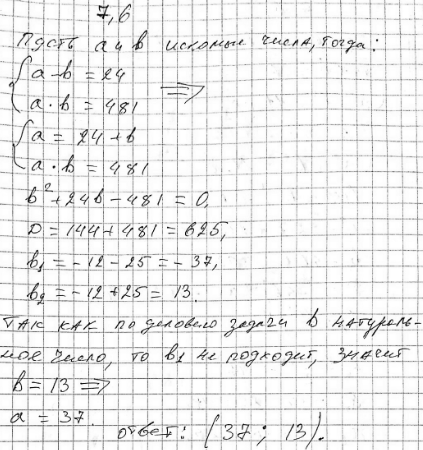 7,6
Пусть a и b искомые числа, тогда:
{ a - b = 24
a · b = 481 ⇒
{ a = 24 + b
a · b = 481
b² + 24b - 481 = 0,
D = 144 + 481 = 625,
b₁ = -12 - 25 = -37,
b₂ = -12 + 25 = 13.
Так как по условию задачи b натураль-
ное число, то b₁ не подходит, значит
b = 13 ⇒
a = 37.
ответ: (37; 13).